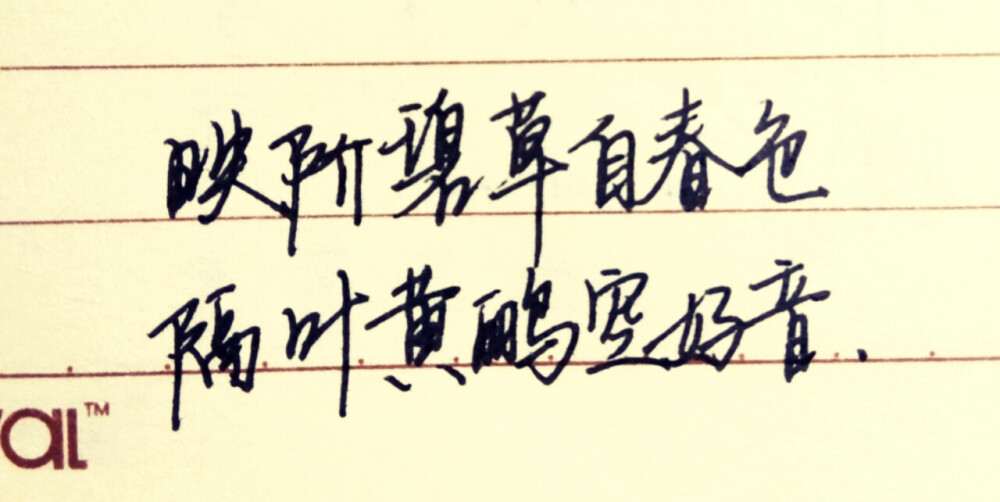 映阶碧草自春色
隔叶黄鹂空好音.
al™